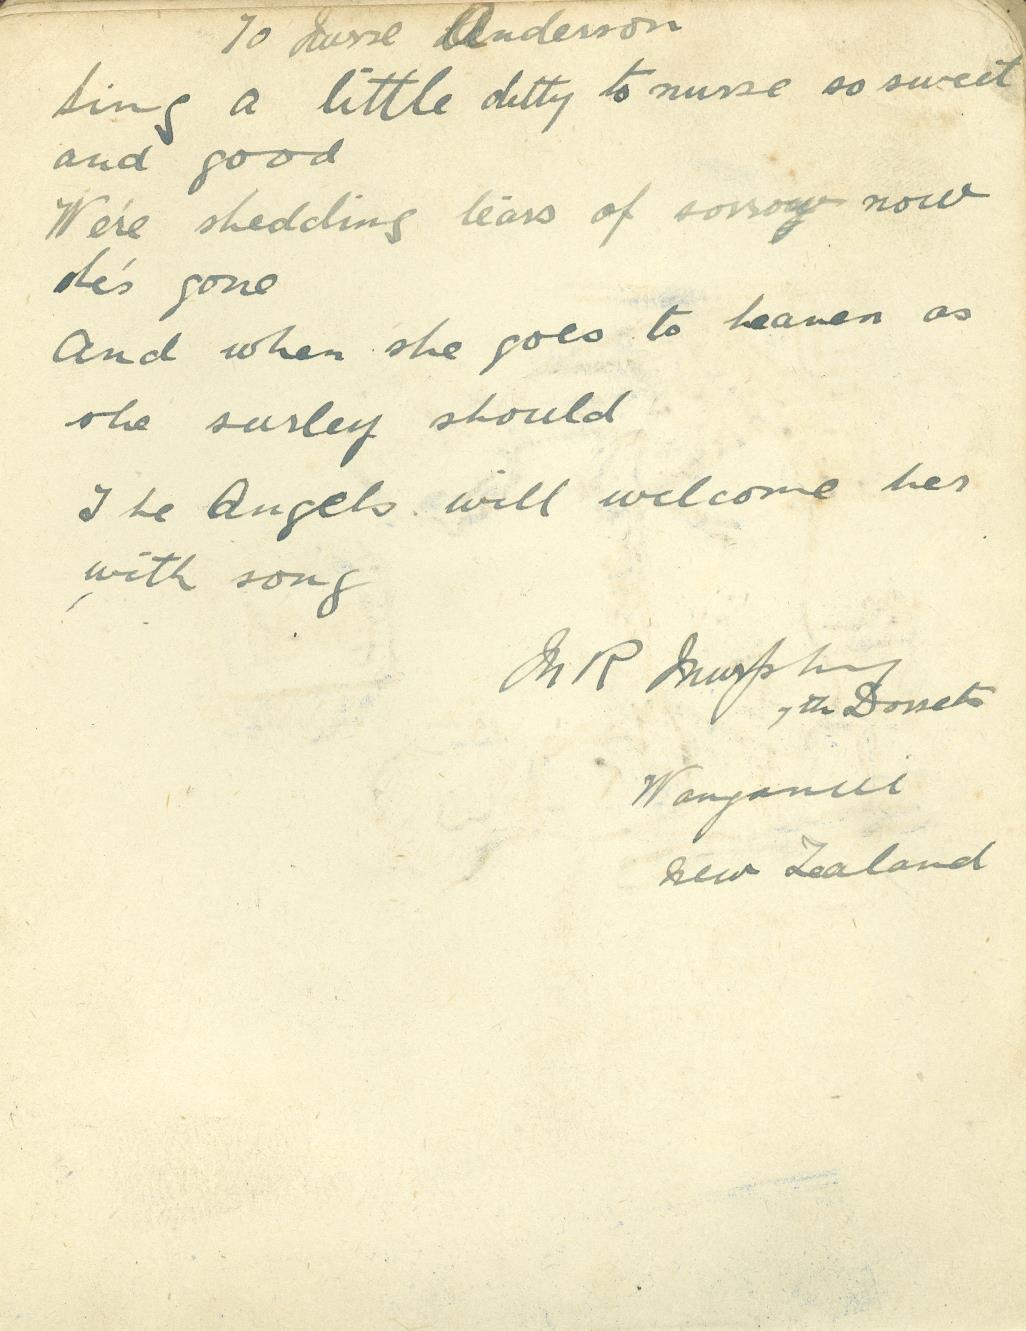 To Nurse Anderson
Sing a little ditty to nurse so sweet
and good
We're shedding tears of sorrow now
she's gone
And when she goes to heaven as
she surley should
The Angels will welcome her
with song
M R Murphy
7th Dorsets
Wanganui
New Zealand